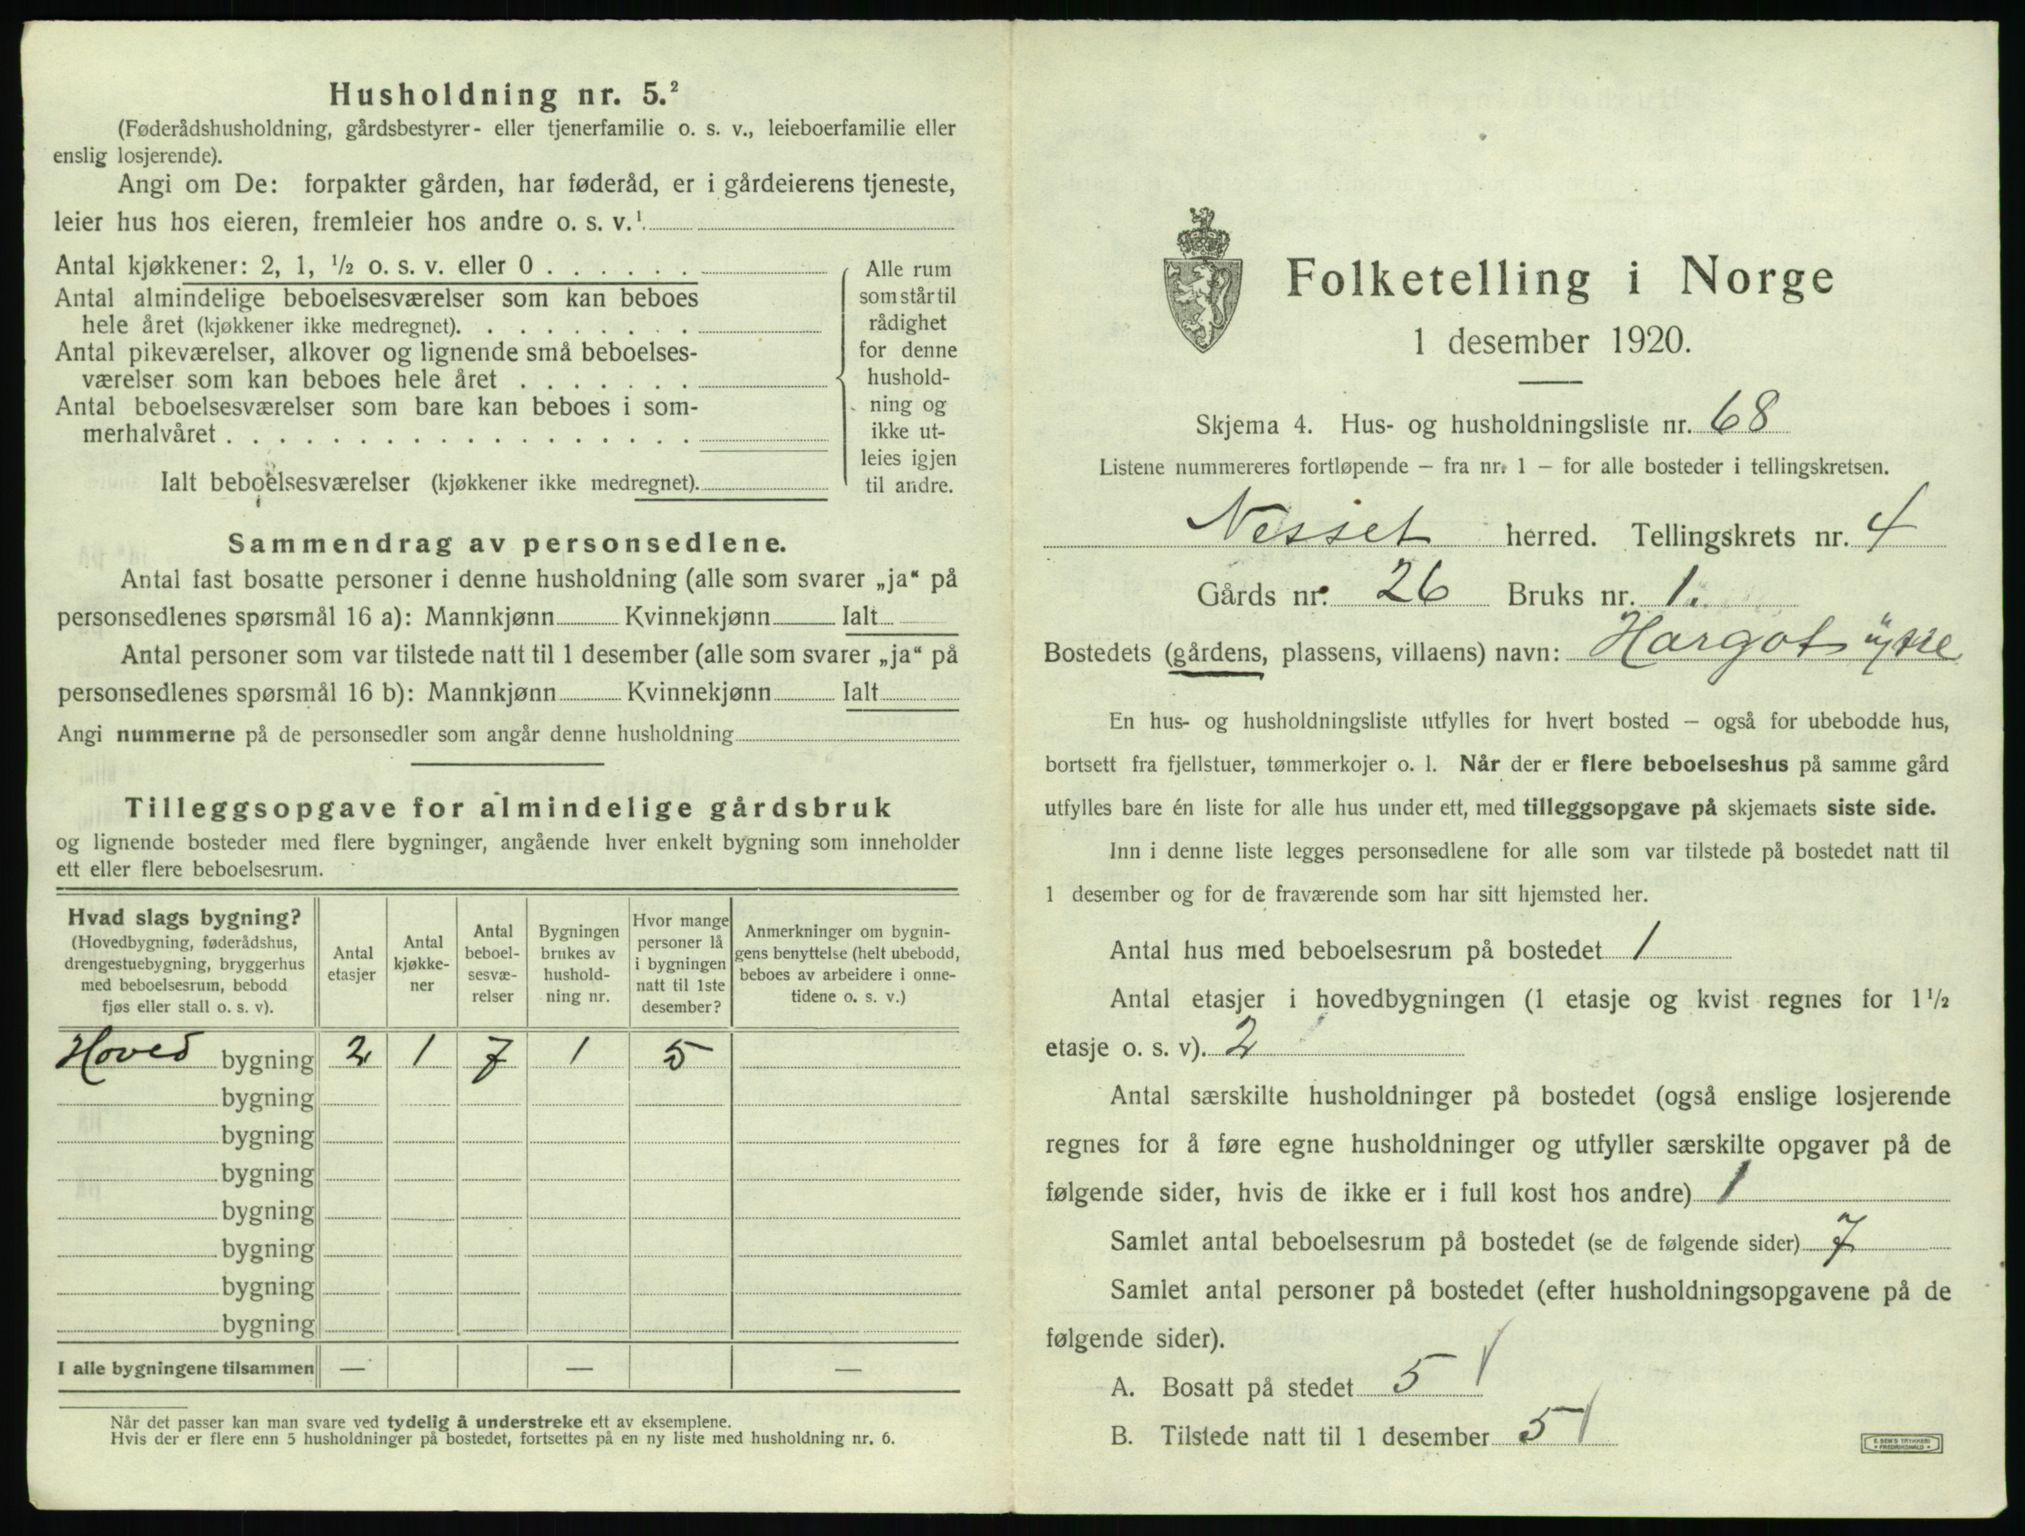 Husholdning nr. 5.²
(Føderådshusholdning, gårdsbestyrer- eller tjenerfamilie o. s. v., leieboerfamilie eller
enslig losjerende).
Angi om De: forpakter gården, har føderåd, er i gårdeierens tjeneste,
leier hus hos eieren, fremleier hos andre o. s. v.¹
Antal kjøkkener: 2, 1, ½ o. s. v. eller 0 . . . . . .
Antal almindelige beboelsesværelser som kan beboes
hele året (kjøkkener ikke medregnet). . . . . . . . .
Antal pikeværelser, alkover og lignende små beboelses-
værelser som kan beboes hele året . . . . . . .
Antal beboelsesværelser som bare kan beboes i som-
merhalvåret . . . . . . . . . . . . . . . . . .
Ialt beboelsesværelser (kjøkkener ikke medregnet).
Alle rum
som står til
rådighet
for denne
hushold-
ning og
ikke ut-
leies igjen
til andre.
Sammendrag av personsedlene.
Antal fast bosatte personer i denne husholdning (alle som svarer „ja“ på
personsedlenes spørsmål 16 a): Mannkjønn Kvinnekjønn Ialt
Antal personer som var tilstede natt til 1 desember (alle som svarer „ja“ på
personsedlenes spørsmål 16 b): Mannkjønn Kvinnekjønn Ialt
Angi nummerne på de personsedler som angår denne husholdning
Tilleggsopgave for almindelige gårdsbruk
og lignende bosteder med flere bygninger, angående hver enkelt bygning som inneholder
ett eller flere beboelsesrum.
Hvad slags bygning?
(Hovedbygning, føderådshus,
drengestuebygning, bryggerhus
med beboelsesrum, bebodd
fjøs eller stall o. s. v).
Antal
etasjer
Antal
kjøkke-
ner
Antal
beboel-
sesvæ-
relser
Bygningen
brukes av
hushold-
ning nr.
Hvor mange
personer lå
i bygningen
natt til 1ste
desember?
Anmerkninger om bygnin-
gens benyttelse (helt ubebodd,
beboes av arbeidere i onne-
tidene o. s. v.)
Hoved bygning 2 1 7 1 5
bygning
bygning
bygning
bygning
bygning
bygning
bygning
I alle bygningene tilsammen — — —
Når det passer kan man svare ved tydelig å understreke ett av eksemplene.
Hvis der er flere enn 5 husholdninger på bostedet, fortsettes på en ny liste med husholdning nr. 6.
Folketelling i Norge
1 desember 1920.
Skjema 4. Hus- og husholdningsliste nr. 68
Listene nummereres fortløpende – fra nr. 1 – for alle bosteder i tellingskretsen.
Nesset herred. Tellingskrets nr. 4
Gårds nr. 26 Bruks nr. 1.
Bostedets (gårdens, plassens, villaens) navn: Hargot ytre
En hus- og husholdningsliste utfylles for hvert bosted – også for ubebodde hus,
bortsett fra fjellstuer, tømmerkojer o. l. Når der er flere beboelseshus på samme gård
utfylles bare én liste for alle hus under ett, med tilleggsopgave på skjemaets siste side.
Inn i denne liste legges personsedlene for alle som var tilstede på bostedet natt til
1 desember og for de fraværende som har sitt hjemsted her.
Antal hus med beboelsesrum på bostedet 1
Antal etasjer i hovedbygningen (1 etasje og kvist regnes for 1½
etasje o. s. v). 2
Antal særskilte husholdninger på bostedet (også enslige losjerende
regnes for å føre egne husholdninger og utfyller særskilte opgaver på de
følgende sider, hvis de ikke er i full kost hos andre) 1
Samlet antal beboelsesrum på bostedet (se de følgende sider) 7
Samlet antal personer på bostedet (efter husholdningsopgavene på de
følgende sider).
A. Bosatt på stedet 5
B. Tilstede natt til 1 desember 5
E. SEM'S TRYKKERI
FREDRIKSHALD